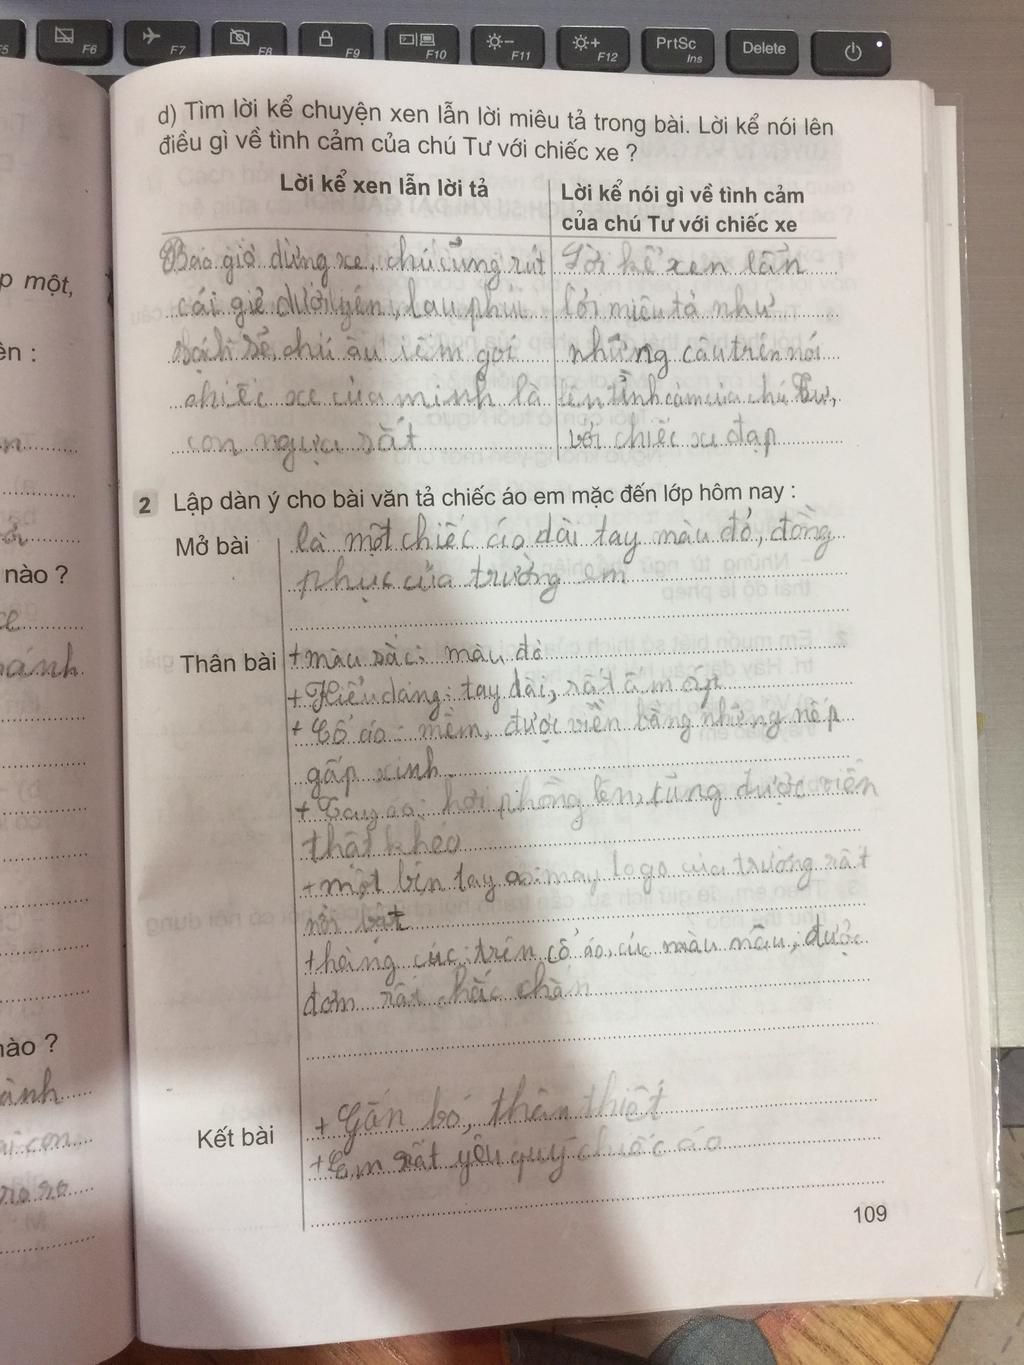 F5
F6
F7
F8
F9
F10
F11
F12
PrtSc
Ins
Delete
d) Tìm lời kể chuyện xen lẫn lời miêu tả trong bài. Lời kể nói lên
điều gì về tình cảm của chú Tư với chiếc xe ?
Lời kể xen lẫn lời tả
Bao giờ dừng xe, chú cũng rút
cái giẻ dưới yên, lau phủi
sạch sẽ, chú âu iếm gọi
chiếc xe của mình là
con ngựa sắt
Lời kể nói gì về tình cảm
của chú Tư với chiếc xe
Lời kể xen lẫn
lời miêu tả như
những câu trên nói
lên tình cảm của chú Tư,
với chiếc xe đạp
2 Lập dàn ý cho bài văn tả chiếc áo em mặc đến lớp hôm nay :
Mở bài
là một chiếc áo dài tay màu đỏ, đồng
phục của trường em
Thân bài
+ màu sắc: màu đỏ
+ Kiểu dáng: tay dài, rất ấm áp
+ Cổ áo: mềm, được viền bằng những nếp
gấp xinh
+ Tay áo: hơi phồng lên, cũng được viền
thật khéo
+ một bên tay áo: may logo của trường rất
nổi bật
+ hàng cúc: trên cổ áo, cúc màu nâu, được
đơm rất chắc chắn
Kết bài
+ Gắn bó, thân thiết
+ Em rất yêu quý chiếc áo
109
p một,
ên :
nào ?
ánh
nào ?
ành